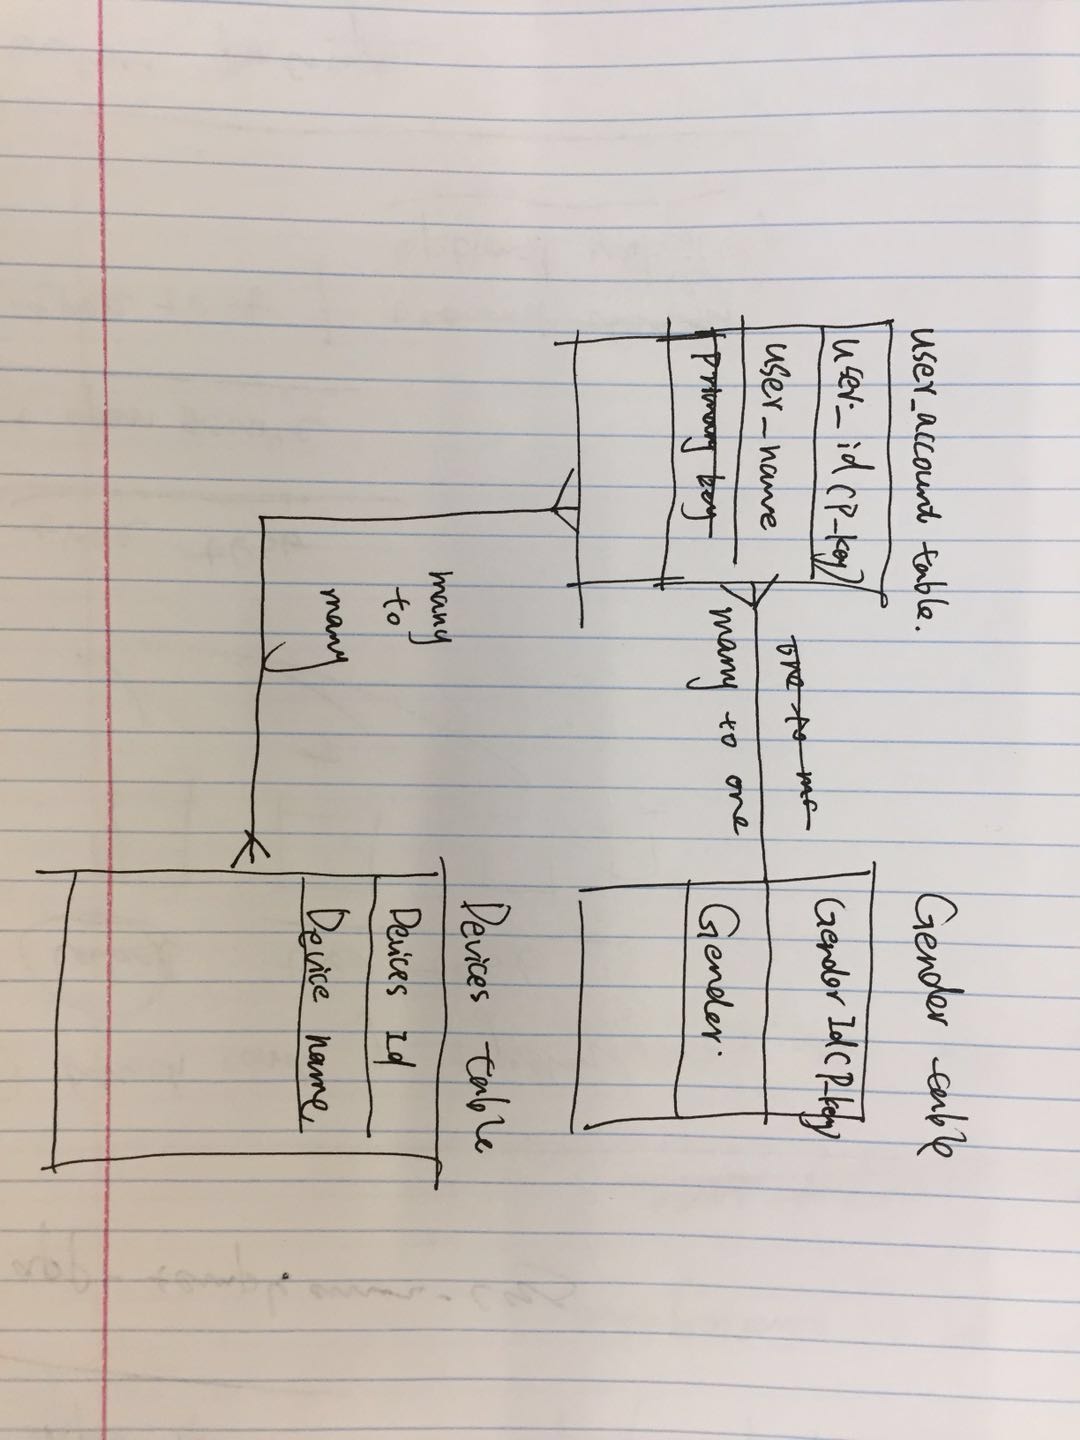 user_account table.
user_id (P_key)
user_name
primary key
one to mo
many to one
many
to
many
Gender table
Gendor Id (P_key)
Gender.
Devices table
Devices Id
Device name,